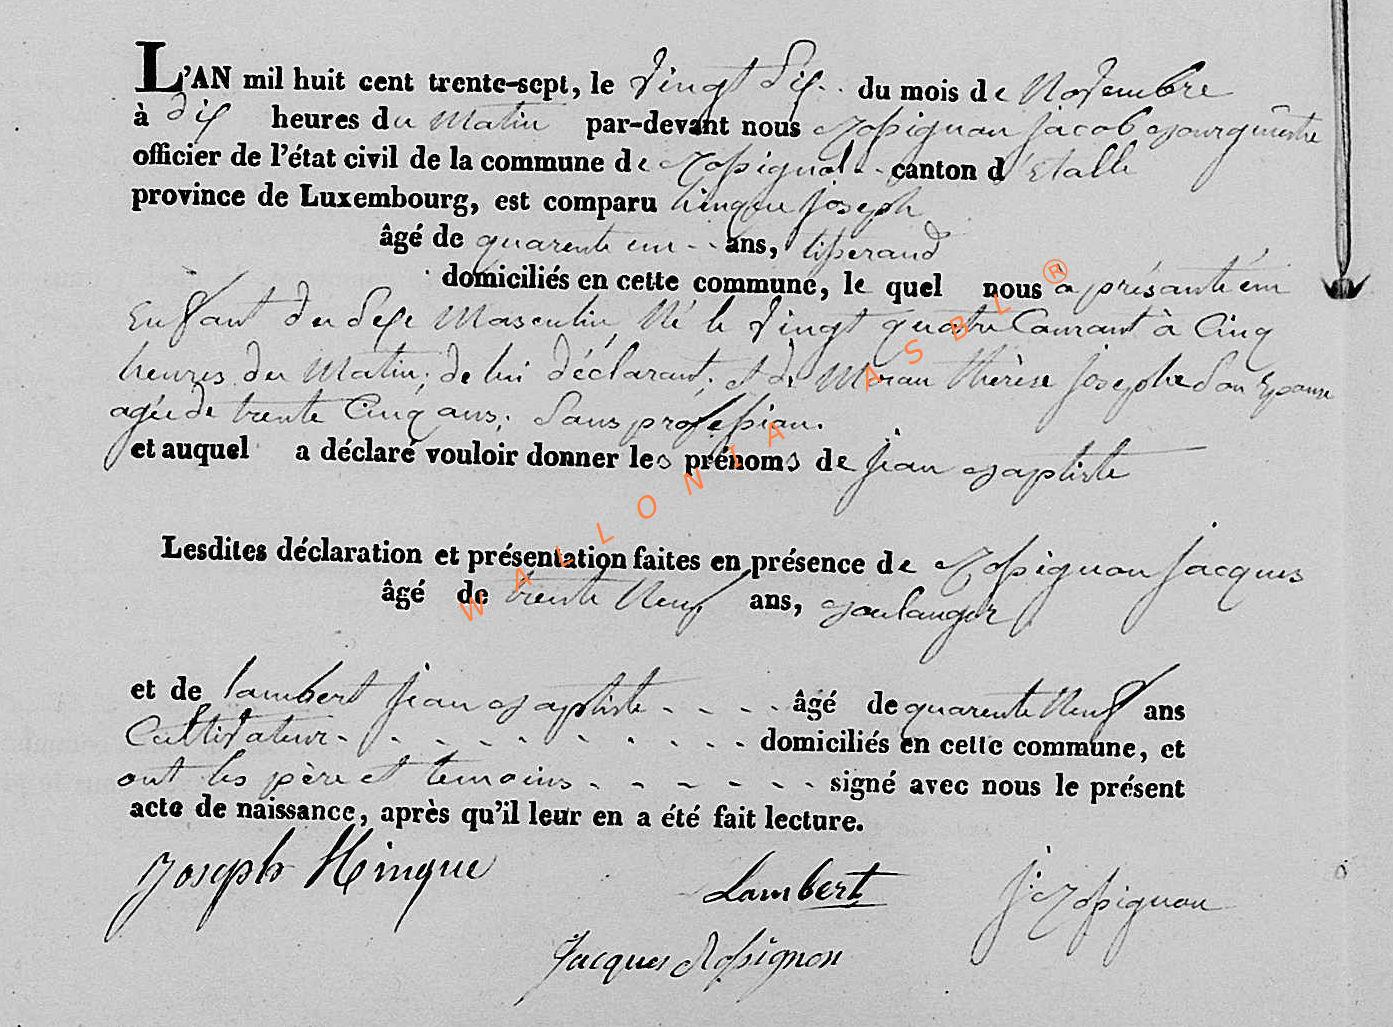 L'AN mil huit cent trente-sept, le Vingt Six du mois de Novembre
à dix heures du Matin par-devant nous Rossignon Jacob Bourguestre
officier de l'état civil de la commune de Rossignol canton d'Etalle
province de Luxembourg, est comparu hinque Joseph
âgé de quarente un ans, tisserand
domiciliés en cette commune, le quel nous à présanté un
Enfant du Sexe Masculin Né le Vingt quatre Courant à Cinq
heures du Matin, de lui déclarant, et de Moreau thérèse Josephe Son Epouse
agée de trente Cinq ans, Sans profession.
et auquel a déclaré vouloir donner les prénoms de jean Baptiste
Lesdites déclaration et présentation faites en présence de Rossignon Jacques
âgé de trente Neuf ans, Boulanger
et de lambert jean Baptiste - - - - âgé de quarente Neuf ans
Cultivateur - - - - - - - - - - domiciliés en cette commune, et
ont les père et temoins - - - - - - signé avec nous le présent
acte de naissance, après qu'il leur en a été fait lecture.
Joseph Hinque
Lambert
J: Rossignon
Jacques Rossignon
WALLONIA ASBL ®